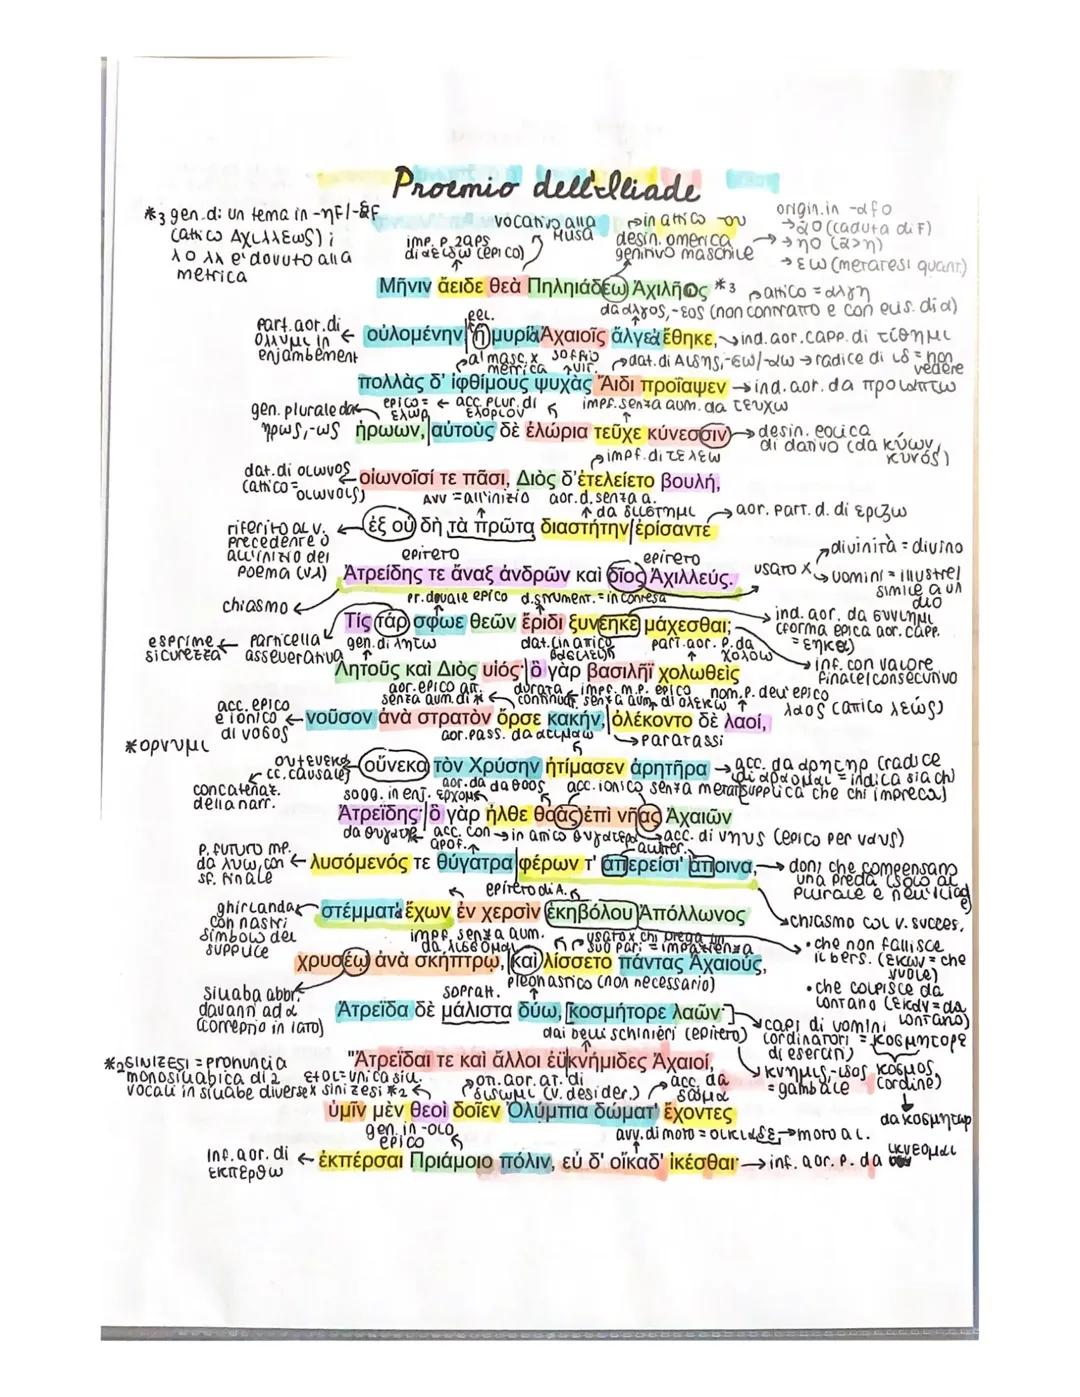 Proemio dell'Iliade
*3 gen. di un tema in -ηF/-εF
(attico Ἀχιλλέως);
λ o λλ e' dovuto alla
metrica
vocativo alla
Musa
imp. p. 2ªps
di ἀείδω (epico)
in attico -ου
desin. omerica
genitivo maschile
origin. in -αFο
→ αο (caduta di F)
→ ηο (α>η)
→ εω (metatesi quant.)
Μῆνιν ἄειδε θεὰ Πηληϊάδεω Ἀχιλῆος *3
attico = ἄλγη
da ἄλγος, -εος (non contratto e con elis. di α)
Part. aor. di
ὄλλυμι in
enjambement
rel.
οὐλομένην, ἣ μυρί' Ἀχαιοῖς ἄλγε' ἔθηκε,
ind. aor. capp. di τίθημι
al masc. x
metrica
dat. di Ἀΐδης, -εω/-αω → radice di ιδ = non
vedere
πολλὰς δ' ἰφθίμους ψυχὰς Ἄϊδι προΐαψεν → ind. aor. da προϊάπτω
gen. plurale da
ἥρως, -ως
epico =
ἕλωρ
← acc. plur. di
ἑλώριον
impf. senza aum. da τεύχω
ἡρώων, αὐτοὺς δὲ ἑλώρια τεῦχε κύνεσσιν
→ desin. eolica
di dativo (da κύων,
κυνός)
impf. di τελέω
dat. di οἰωνός
(attico = οἰωνοῖς)
οἰωνοῖσί τε πᾶσι, Διὸς δ' ἐτελείετο βουλή,
avv = all'inizio
aor. d. senza a.
da διΐστημι
→ aor. part. d. di ἐρίζω
riferito al v.
precedente o
all'inizio del
poema (v.1)
ἐξ οὗ δὴ τὰ πρῶτα διαστήτην ἐρίσαντε
epiteto
epiteto
usato x
divinità = divino
uomini = illustre/
simile a un
dio
Ἀτρεΐδης τε ἄναξ ἀνδρῶν καὶ δῖος Ἀχιλλεύς.
chiasmo
pr. duale epico
d. strument. = in contesa
Τίς τάρ σφωε θεῶν ἔριδι ξυνέηκε μάχεσθαι;
ind. aor. da συνίημι
(forma epica aor. capp.
= ἕηκε)
esprime
sicurezza
← particella
asseverativa
gen. di Λητώ
dat. (in attico
βασιλεῖ)
part. aor. p. da
χολόω
inf. con valore
finale/consecutivo
Λητοῦς καὶ Διὸς υἱός· ὃ γὰρ βασιλῆϊ χολωθεὶς
aor. epico att.
senza aum. di *
durata
continua
impf. m.p. epico
senza aum. di ὀλέκω
nom. p. del epico
λαός (attico λεώς)
acc. epico
e ionico
di νόσος
νοῦσον ἀνὰ στρατὸν ὄρσε κακήν, ὀλέκοντο δὲ λαοί,
*ὄρνυμι
aor. pass. da ἀτιμάω
→ paratassi
οὗ ἕνεκα
cc. causale
οὕνεκα τὸν Χρύσην ἠτίμασεν ἀρητῆρα
→ acc. da ἀρητήρ (radice
di ἀράομαι = indica sia chi
supplica che chi impreca)
concatenaz.
della narr.
sogg. in enj.
da θοός
acc. ionico senza metat.
Ἀτρεΐδης· ὃ γὰρ ἦλθε θοὰς ἐπὶ νῆας Ἀχαιῶν
da θυγάτηρ
acc. con
apof.
→ in attico θυγατέρα
acc. di νηῦς (epico per ναῦς)
allitter.
P. futuro mp.
da λύω, con
sf. finale
λυσόμενός τε θύγατρα φέρων τ' ἀπερείσι' ἄποινα,
→ doni che compensano
una preda (solo al
plurale e nell'Iliade)
epiteto di A.
chiasmo col v. succes.
ghirlanda
con nastri
simbolo del
supplice
στέμματ' ἔχων ἐν χερσὶν ἑκηβόλου Ἀπόλλωνος
impf. senza aum.
da λίσσομαι
usato x chi prega un
suo pari = impazienza
• che non fallisce
il bers. (ἑκών = che
vuole)
• che colpisce da
lontano (ἑκάν = da
lontano)
χρυσέῳ ἀνὰ σκήπτρῳ, καὶ λίσσετο πάντας Ἀχαιούς,
pleonastico (non necessario)
sillaba abbr.
davanti ad α
(correptio in iato)
sopratt.
Ἀτρεΐδα δὲ μάλιστα δύω, κοσμήτορε λαῶν·
capi di uomini
(ordinatori = κοσμήτορε
di eserciti)
κόσμος
(ordine)
da κοσμήτωρ
dai begli schinieri (epiteto)
κνημίς, -ῖδος
= gambale
"Ἀτρεΐδαι τε καὶ ἄλλοι ἐϋκνήμιδες Ἀχαιοί,
*2 SINIZESI = pronuncia
monosillabica di 2
vocali in sillabe diverse
unica sill.
x sinizesi *2
ott. aor. at. di
δίδωμι (v. desider.)
acc. da
δῶμα
ὑμῖν μὲν θεοὶ δοῖεν Ὀλύμπια δώματ' ἔχοντες
gen. in -οιο
epico
avv. di moto = οἴκαδε → moto a l.
Inf. aor. di
ἐκπέρθω
ἐκπέρσαι Πριάμοιο πόλιν, εὖ δ' οἴκαδ' ἱκέσθαι· → inf. aor. p. da ἱκνέομαι